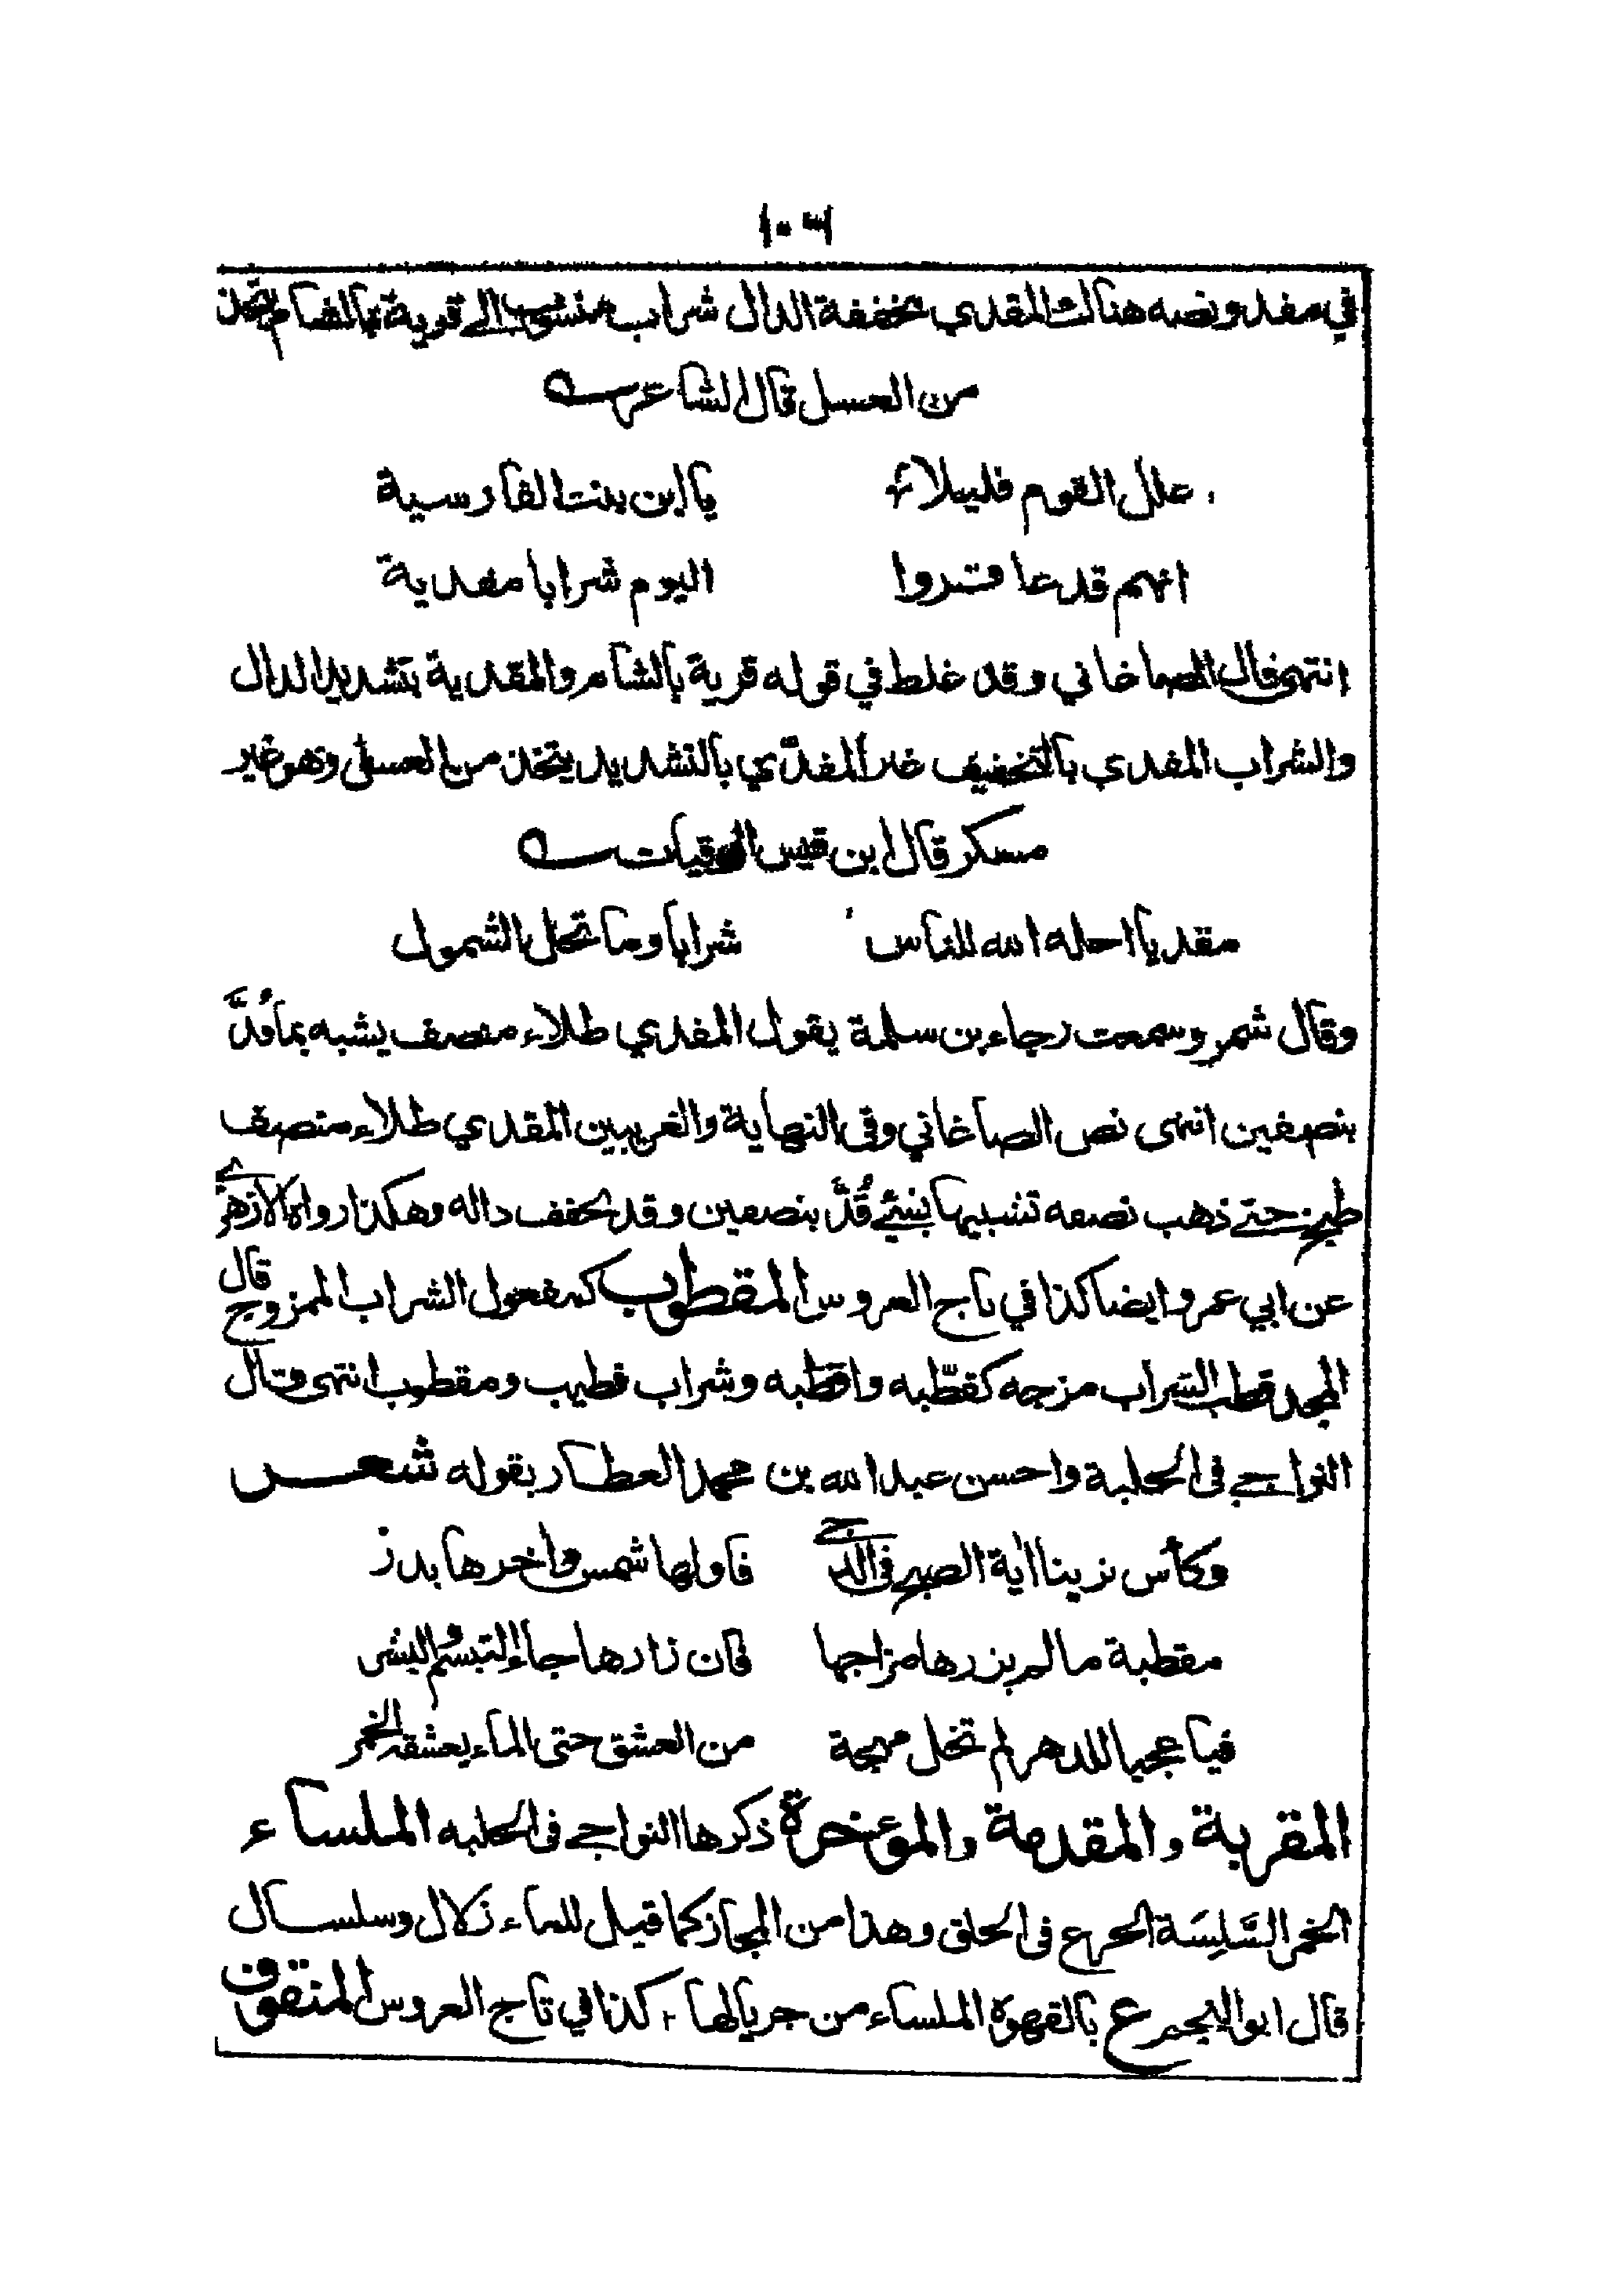 ١٠٦
في مقد ونصه هناك المقدي مخففة الدال شراب منسوب الى قرية بالشام يتخذ
من العسل قال الشاعر
علل القوم قليلا
يا ابن بنت الفارسية
انهم قد عاقروا
اليوم شرابا مقدية
انتهى قال الصاخاني وقد غلط في قوله قرية بالشام والمقدية بتشديد الدال
والشراب المقدي بالتخفيف غير المقدّي بالتشديد يتخذ من العسل وهو غير
مسكر قال ابن قيس الرقيات
مقديا احله الله للناس
شرابا وما تحل الشمول
وقال شمر وسمعت رجاء بن سلمة يقول المقدي طلاء منصف يشبه بما قُدَّ
بنصفين انتهى نص الصاغاني وفي النهاية والغريبين المقدي طلاء منصف
طبخ حتى ذهب نصفه تشبيها بشئ قُدَّ بنصفين وقد تخفف داله وهكذا رواه الازهري
عن ابي عمرو ايضا كذا في تاج العروس المقطوب كمفعول الشراب الممزوج قال
المجد قطب الشراب مزجه كقطّبه واقطبه وشراب قطيب ومقطوب انتهى وقال
النواجي في الحلبة واحسن عبد الله بن محمد العطار بقوله شعر
وكأس ترينا اية الصبح في الدجى
فاولها شمس واخرها بدر
مقطبة ما لم يزرها مزاجها
فان زارها جاء التبسم والبشر
فيا عجبا للدهر لم تخل مهجة
من العشق حتى الماء يعشقه الخمر
المقربة والمقدمة والموءخرة ذكرها النواجي في الحلبه الملساء
الخمر السَّلِسَة الجرع في الحلق وهذا من المجاز كما قيل للماء زلال وسلسال
قال ابو النجم ع بالقهوة الملساء من جريالها، كذا في تاج العروس المنقوف